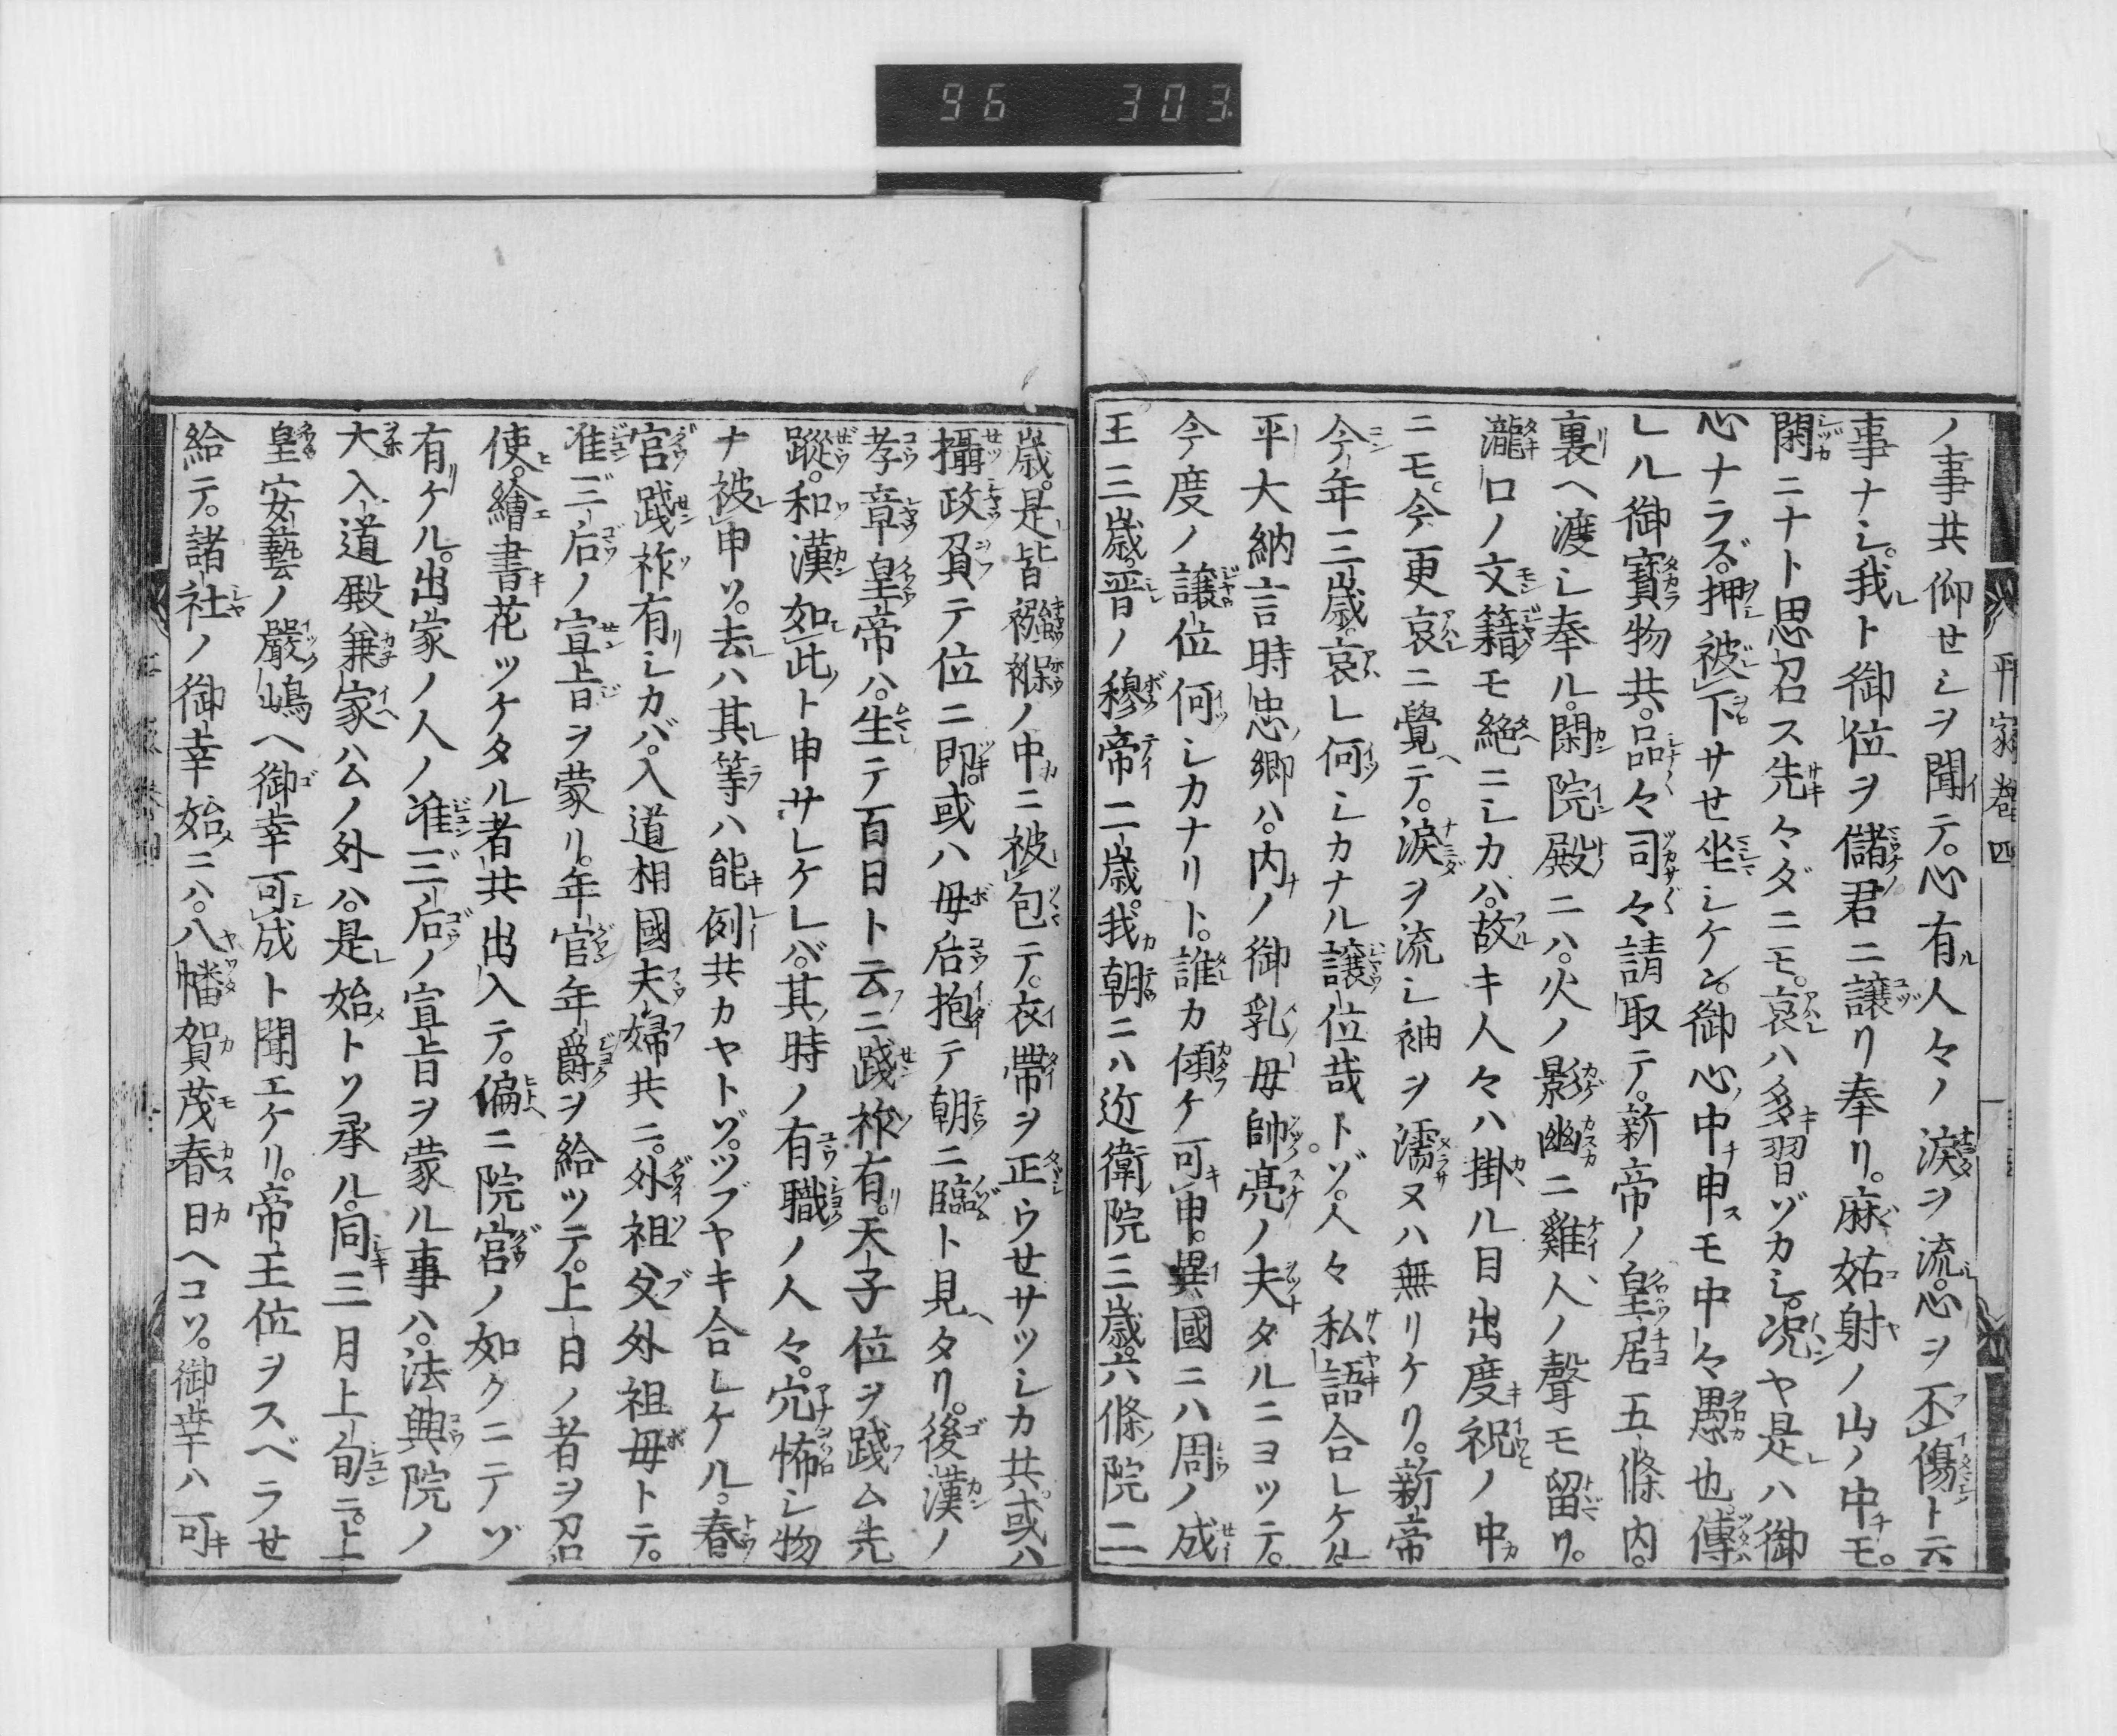 96 303
平家巻四
ノ事共仰せシヲ聞テ。心有人々ノ涙ヲ流シ。心ヲ不傷ト云
事ナシ。我ト御位ヲ儲君ニ譲リ奉リ。麻姑射ノ山ノ中モ。
閑ニナト思召ス先々ダニモ。哀ハ多習ヅカシ。况ヤ是ハ御
心ナラズ。押被下サせ坐シケン。御心中申スモ中々愚也。傳
レル御寶物共。品々司々請取テ。新帝ノ皇居五條内。
裏ヘ渡シ奉ル。閑院殿ニハ。火ノ影幽ニ雞人ノ聲モ留リ。
瀧口ノ文籍モ絶ニシカバ。故キ人々ハ掛ル目出度祝ノ中
ニモ。今更哀ニ覺テ。涙ヲ流シ袖ヲ濡ヌハ無リケリ。新帝
今年三歳。哀レ何シカナル譲位哉トゾ。人々私語合レケル。
平大納言時忠卿ハ。内ノ御乳母帥亮ノ夫タルニヨツテ。
今度ノ譲位何シカナリト。誰カ傾ケ可申。異國ニハ周ノ成
王三歳。晋ノ穆帝二歳。我朝ニハ近衛院三歳。六條院二
歳。是皆襁褓ノ中ニ被包テ。衣帶ヲ正ウせサツシカ共。或ハ
攝政負テ位ニ即。或ハ母后抱テ朝ニ臨ト見タリ。後漢ノ
孝章皇帝ハ。生テ百日ト云ニ踐祚有。天子位ヲ踐ム先
蹤。和漢如此ト申サレケレバ。其時ノ有職ノ人々。穴怖シ物
ナ被申ソ。去ハ其等ハ能例共カヤトゾ。ツブヤキ合レケル。春
宮踐祚有シカバ。入道相國夫婦共ニ。外祖父外祖母トテ。
准三后ノ宣旨ヲ蒙リ。年官年爵ヲ給ツテ。上日ノ者ヲ召
使。繪書花ツケタル者共出入テ。偏ニ院宮ノ如クニテゾ
有ケル。出家ノ人ノ准三后ノ宣旨ヲ蒙ル事ハ。法興院ノ
大入道殿兼家公ノ外ハ。是始トソ承ル。同三月上旬ニ。上
皇安藝ノ嚴嶋ヘ御幸可成ト聞エケリ。帝王位ヲスベラせ
給テ。諸社ノ御幸始ニハ。八幡賀茂春日ヘコソ。御幸ハ可